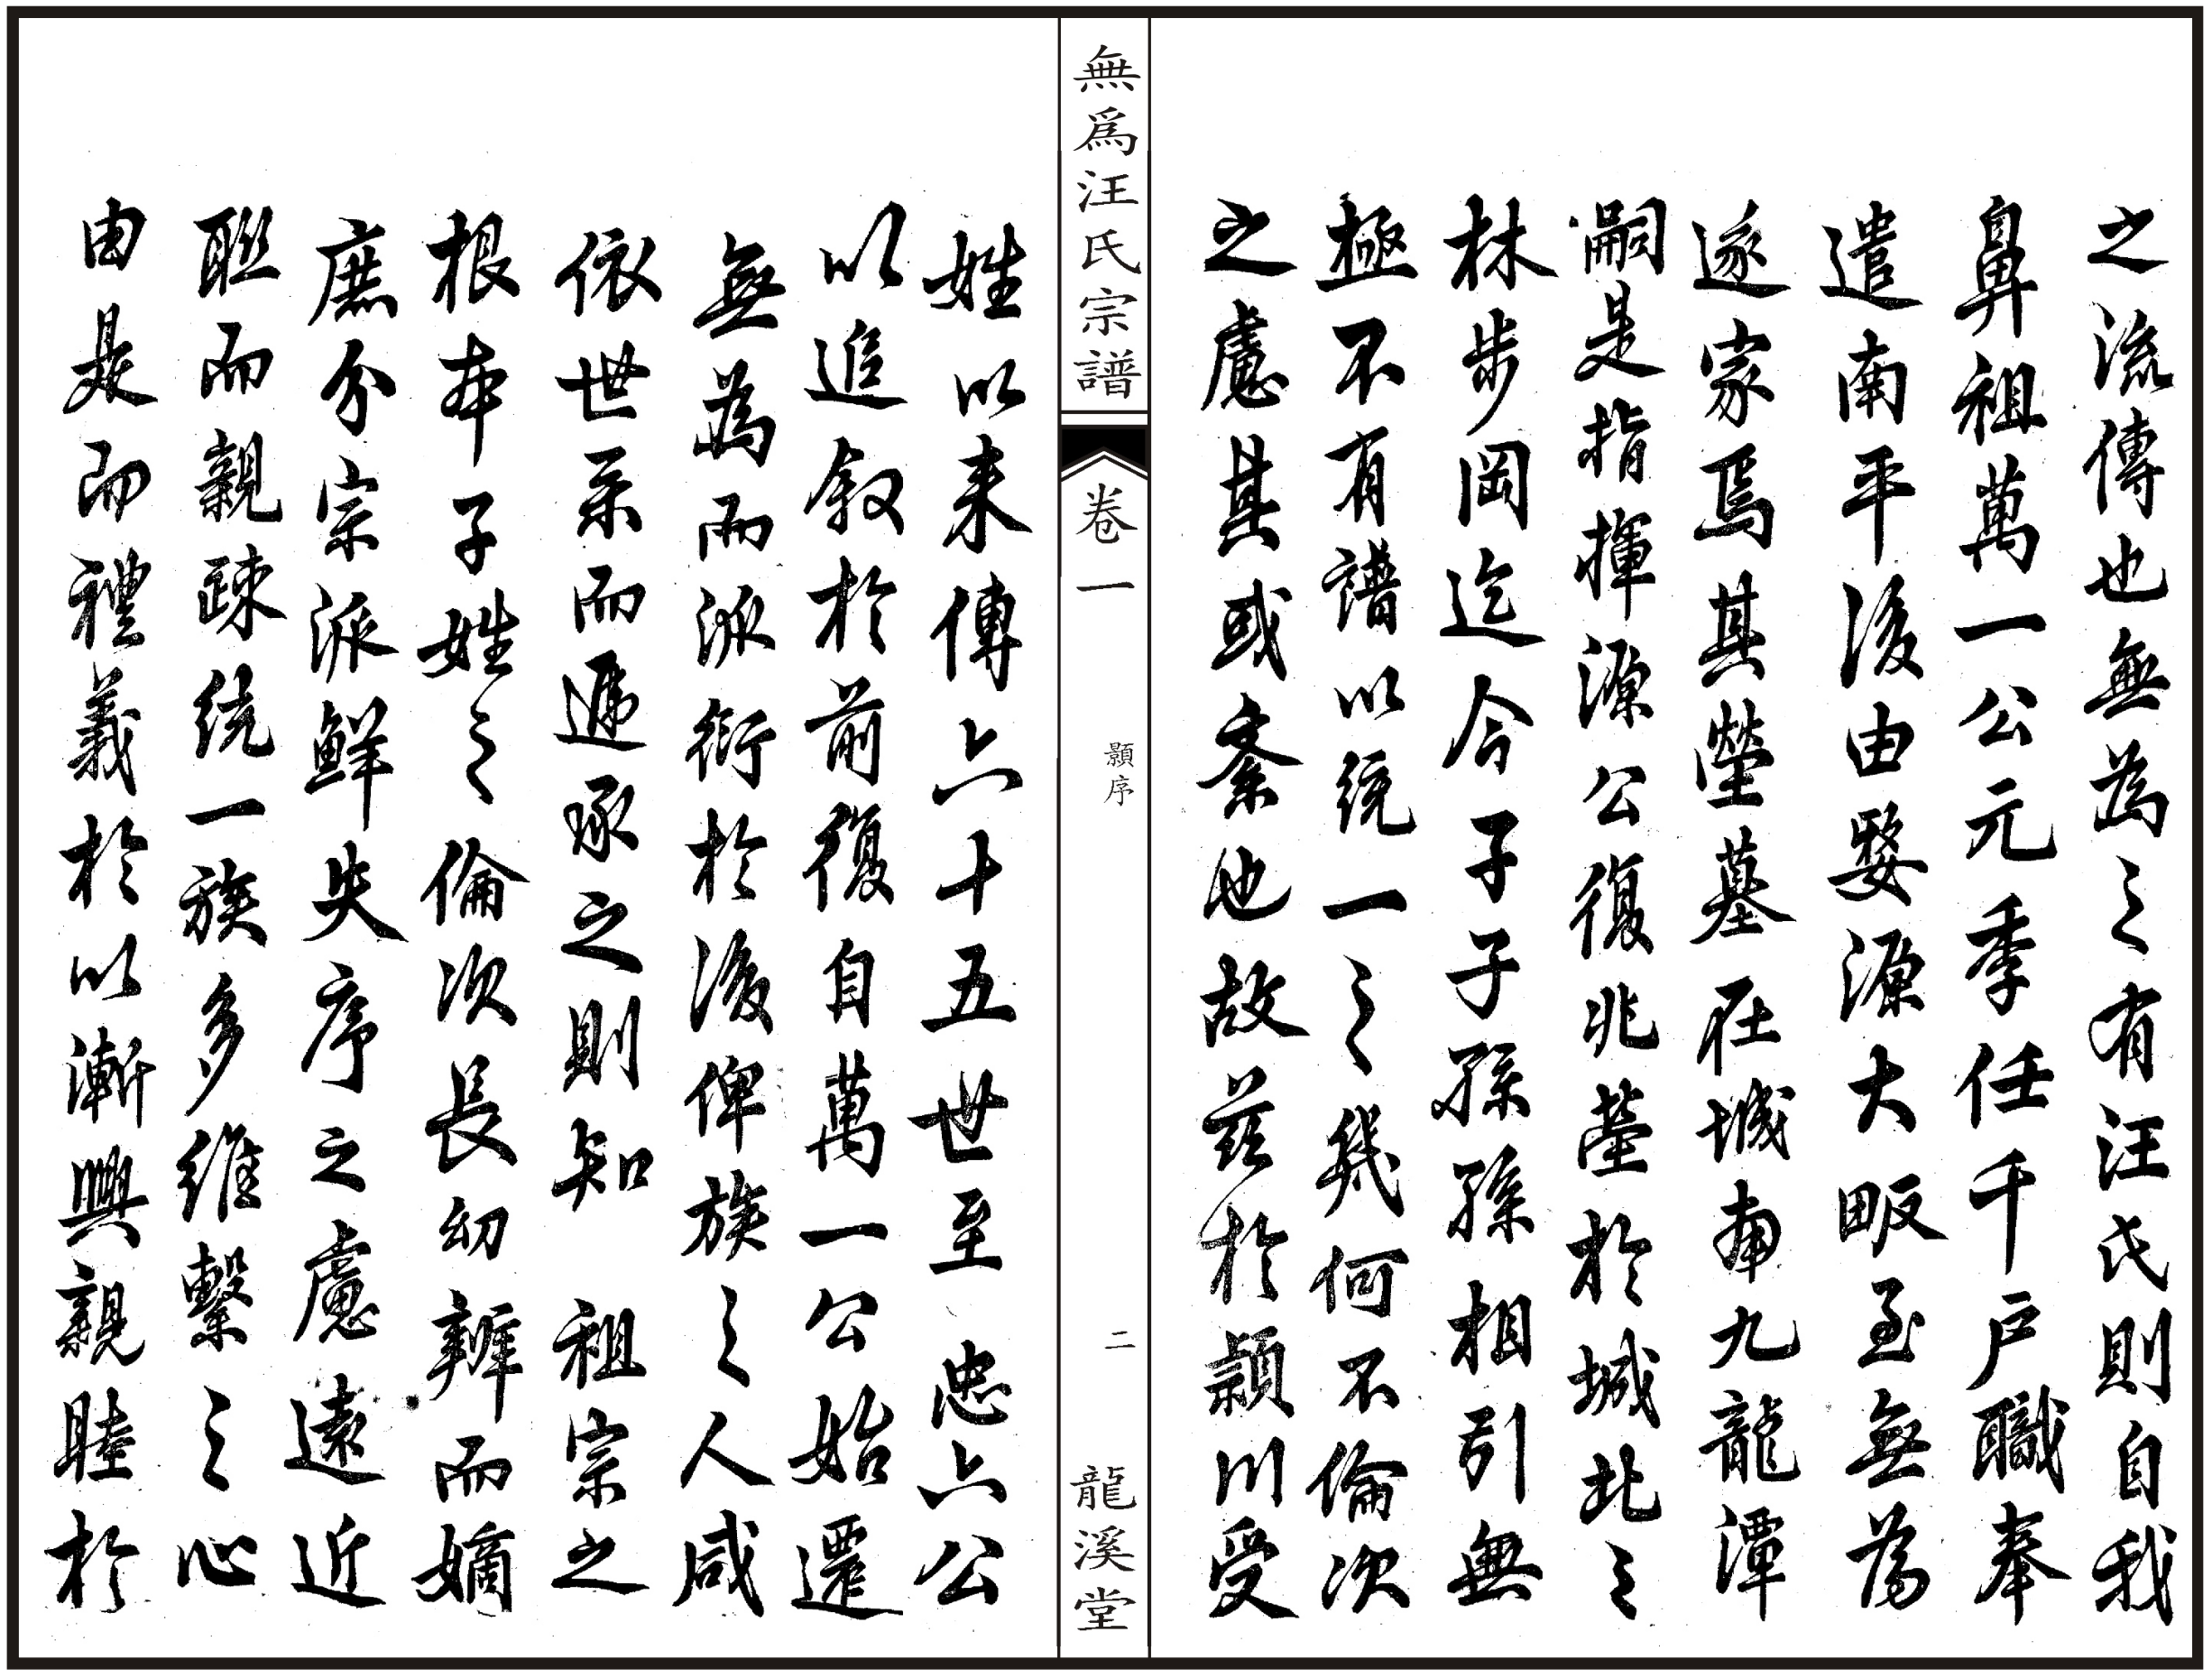 之流傳也無為之有汪氏則自我
鼻祖萬一公元季任千戶職奉
遣南平後由婺源大畈至無為
遂家焉其塋墓在城南九龍潭
嗣是指揮源公復兆塋於城北之
林步岡迄今子子孫孫相引無
極不有譜以統一之幾何不倫次
之慮其或紊也故茲於潁川受
無爲汪氏宗譜
卷一
顥序
二
龍溪堂
姓以來傳六十五世至 忠六公
以追叙於前復自萬一公始遷
無為而派衍於後俾族之人咸
依世系而遞承之則知 祖宗之
根本子姓之倫次長幼辨而嫡
庶分宗派鮮失序之慮遠近
聯而親疎統一族多維繫之心
由是而禮義於以漸興親睦於